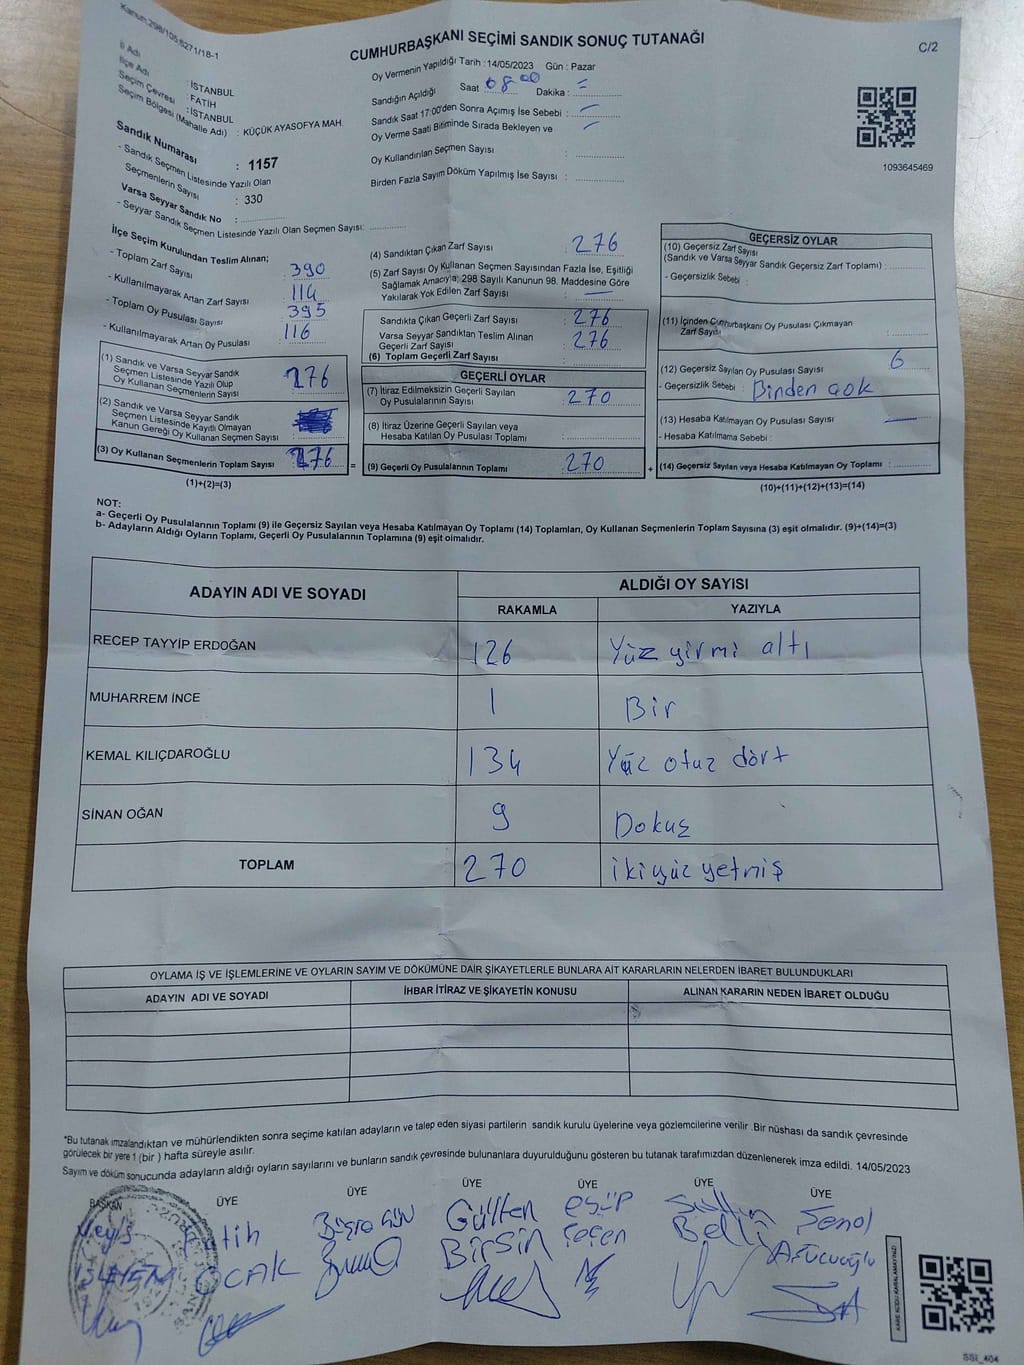 Kanun:298/105:6271/18-1
C/2
CUMHURBAŞKANI SEÇİMİ SANDIK SONUÇ TUTANAĞI
İl Adı : İSTANBUL
İlçe Adı : FATİH
Seçim Çevresi : İSTANBUL
Seçim Bölgesi (Mahalle Adı) : KÜÇÜK AYASOFYA MAH.
Sandık Numarası : 1157
- Sandık Seçmen Listesinde Yazılı Olan
Seçmenlerin Sayısı : 330
Varsa Seyyar Sandık No :
- Seyyar Sandık Seçmen Listesinde Yazılı Olan Seçmen Sayısı:
Oy Vermenin Yapıldığı Tarih : 14/05/2023 Gün : Pazar
Sandığın Açıldığı Saat 08 00 Dakika :
Sandık Saat 17:00'den Sonra Açımış İse Sebebi :
Oy Verme Saati Bitiminde Sırada Bekleyen ve
Oy Kullandırılan Seçmen Sayısı :
Birden Fazla Sayım Döküm Yapılmış İse Sayısı :
1093645469
İlçe Seçim Kurulundan Teslim Alınan;
- Toplam Zarf Sayısı : 390
- Kullanılmayarak Artan Zarf Sayısı : 114
- Toplam Oy Pusulası Sayısı : 395
- Kullanılmayarak Artan Oy Pusulası : 116
(1) Sandık ve Varsa Seyyar Sandık
Seçmen Listesinde Yazılı Olup
Oy Kullanan Seçmenlerin Sayısı : 276
(2) Sandık ve Varsa Seyyar Sandık
Seçmen Listesinde Kayıtlı Olmayan
Kanun Gereği Oy Kullanan Seçmen Sayısı :
(3) Oy Kullanan Seçmenlerin Toplam Sayısı : 276
(1)+(2)=(3)
(4) Sandıktan Çıkan Zarf Sayısı : 276
(5) Zarf Sayısı Oy Kullanan Seçmen Sayısından Fazla İse, Eşitliği
Sağlamak Amacıyla; 298 Sayılı Kanunun 98. Maddesine Göre
Yakılarak Yok Edilen Zarf Sayısı :
Sandıkta Çıkan Geçerli Zarf Sayısı : 276
Varsa Seyyar Sandıktan Teslim Alınan
Geçerli Zarf Sayısı : 276
(6) Toplam Geçerli Zarf Sayısı :
GEÇERLİ OYLAR
(7) İtiraz Edilmeksizin Geçerli Sayılan
Oy Pusulalarının Sayısı : 270
(8) İtiraz Üzerine Geçerli Sayılan veya
Hesaba Katılan Oy Pusulası Toplamı :
= (9) Geçerli Oy Pusulalarının Toplamı : 270
GEÇERSİZ OYLAR
(10) Geçersiz Zarf Sayısı
(Sandık ve Varsa Seyyar Sandık Geçersiz Zarf Toplamı) :
- Geçersizlik Sebebi :
(11) İçinden Cumhurbaşkanı Oy Pusulası Çıkmayan
Zarf Sayısı :
(12) Geçersiz Sayılan Oy Pusulası Sayısı : 6
- Geçersizlik Sebebi : Birden çok
(13) Hesaba Katılmayan Oy Pusulası Sayısı :
- Hesaba Katılmama Sebebi :
+ (14) Geçersiz Sayılan veya Hesaba Katılmayan Oy Toplamı :
(10)+(11)+(12)+(13)=(14)
NOT:
a- Geçerli Oy Pusulalarının Toplamı (9) ile Geçersiz Sayılan veya Hesaba Katılmayan Oy Toplamı (14) Toplamları, Oy Kullanan Seçmenlerin Toplam Sayısına (3) eşit olmalıdır. (9)+(14)=(3)
b- Adayların Aldığı Oyların Toplamı, Geçerli Oy Pusulalarının Toplamına (9) eşit olmalıdır.
ADAYIN ADI VE SOYADI ALDIĞI OY SAYISI
RAKAMLA YAZIYLA
RECEP TAYYİP ERDOĞAN 126 Yüz yirmi altı
MUHARREM İNCE 1 Bir
KEMAL KILIÇDAROĞLU 134 Yüz otuz dört
SİNAN OĞAN 9 Dokuz
TOPLAM 270 ikiyüz yetmiş
OYLAMA İŞ VE İŞLEMLERİNE VE OYLARIN SAYIM VE DÖKÜMÜNE DAİR ŞİKAYETLERLE BUNLARA AİT KARARLARIN NELERDEN İBARET BULUNDUKLARI
ADAYIN ADI VE SOYADI İHBAR İTİRAZ VE ŞİKAYETİN KONUSU ALINAN KARARIN NEDEN İBARET OLDUĞU
*Bu tutanak imzalandıktan ve mühürlendikten sonra seçime katılan adayların ve talep eden siyasi partilerin sandık kurulu üyelerine veya gözlemcilerine verilir .Bir nüshası da sandık çevresinde
görülecek bir yere 1 (bir ) hafta süreyle asılır.
Sayım ve döküm sonucunda adayların aldığı oyların sayılarını ve bunların sandık çevresinde bulunanlara duyurulduğunu gösteren bu tutanak tarafımızdan düzenlenerek imza edildi. 14/05/2023
BAŞKAN ÜYE ÜYE ÜYE ÜYE ÜYE ÜYE
Veyis Fatih Büşra GÜN Gülten eşüp Sultan Şenol
OCAK Birsin Seçen Belli
KARE KODU KARALAMAYINIZ!
SSI_404